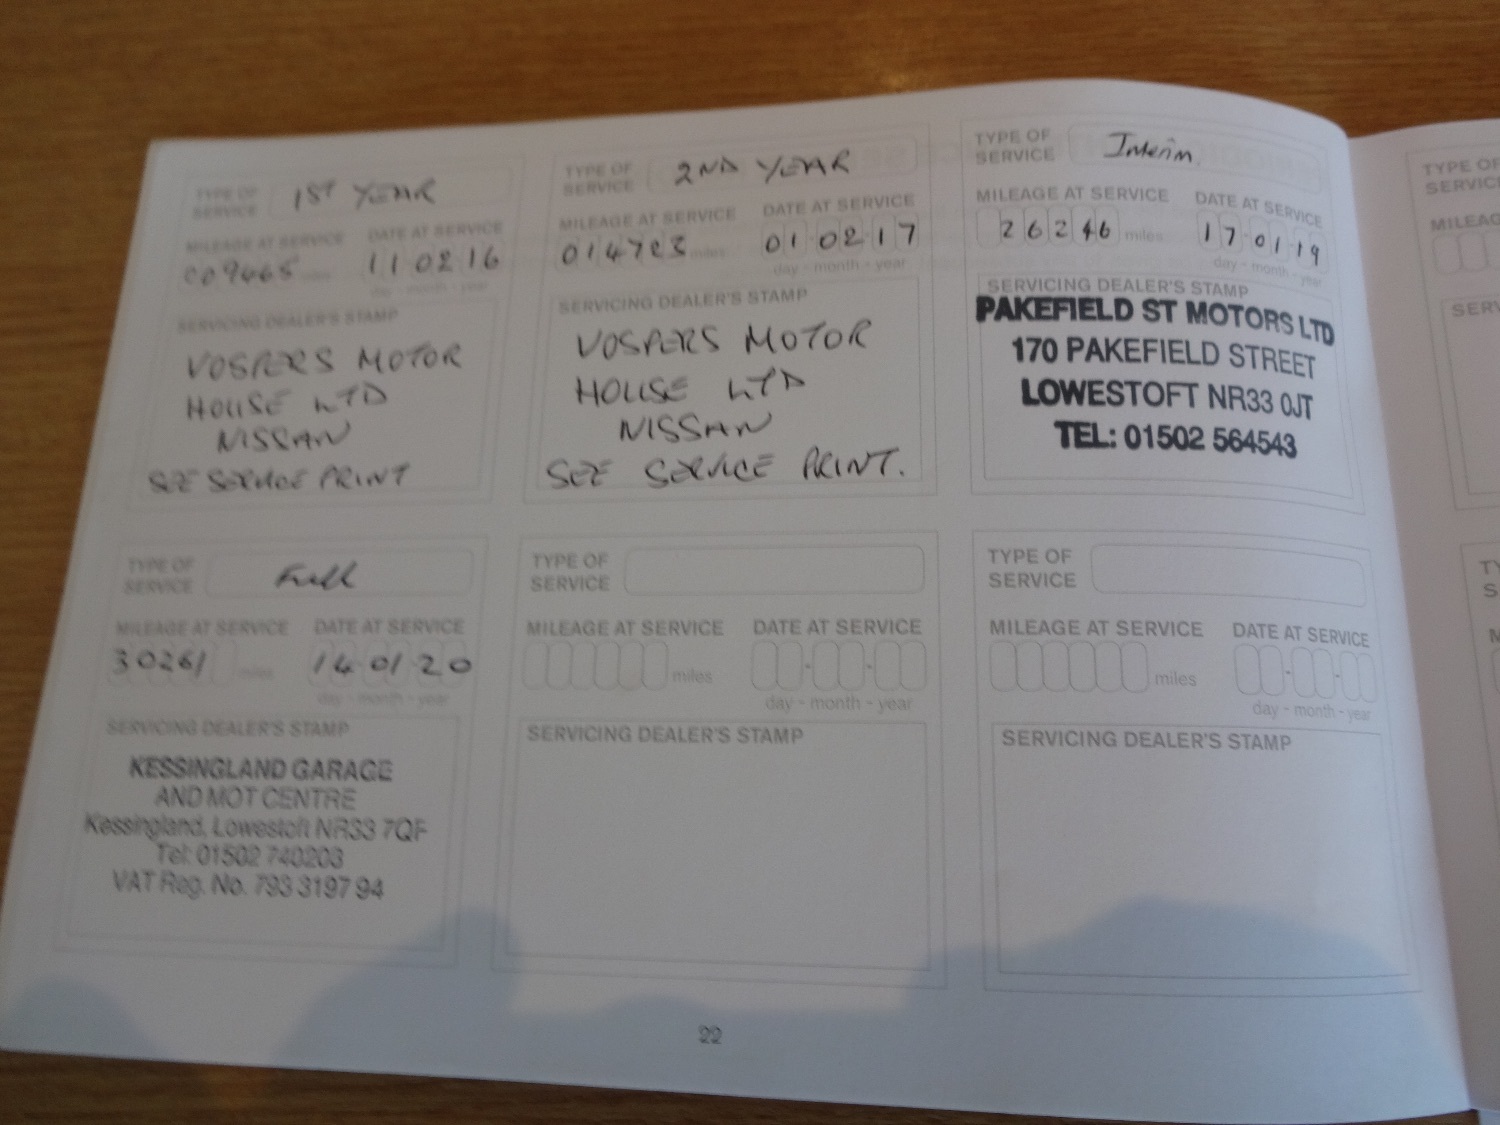 TYPE OF
SERVICE
1ST YEAR
MILEAGE AT SERVICE
DATE AT SERVICE
009465 miles
11 02 16
day - month - year
SERVICING DEALER'S STAMP
VOSPERS MOTOR
HOUSE LTD
NISSAN
SEE SERVICE PRINT
TYPE OF
SERVICE
2ND YEAR
MILEAGE AT SERVICE
DATE AT SERVICE
014723 miles
01 02 17
day - month - year
SERVICING DEALER'S STAMP
VOSPERS MOTOR
HOUSE LTD
NISSAN
SEE SERVICE PRINT.
TYPE OF
SERVICE
Interim
MILEAGE AT SERVICE
DATE AT SERVICE
26246 miles
17 01 19
day - month - year
SERVICING DEALER'S STAMP
PAKEFIELD ST MOTORS LTD
170 PAKEFIELD STREET
LOWESTOFT NR33 0JT
TEL: 01502 564543
TYPE OF
SERVICE
Full
MILEAGE AT SERVICE
DATE AT SERVICE
30261 miles
14 01 20
day - month - year
SERVICING DEALER'S STAMP
KESSINGLAND GARAGE
AND MOT CENTRE
Kessingland, Lowestoft NR33 7QF
Tel: 01502 740203
VAT Reg. No. 793 3197 94
TYPE OF
SERVICE
MILEAGE AT SERVICE
DATE AT SERVICE
miles
day - month - year
SERVICING DEALER'S STAMP
TYPE OF
SERVICE
MILEAGE AT SERVICE
DATE AT SERVICE
miles
day - month - year
SERVICING DEALER'S STAMP
22
TYPE OF